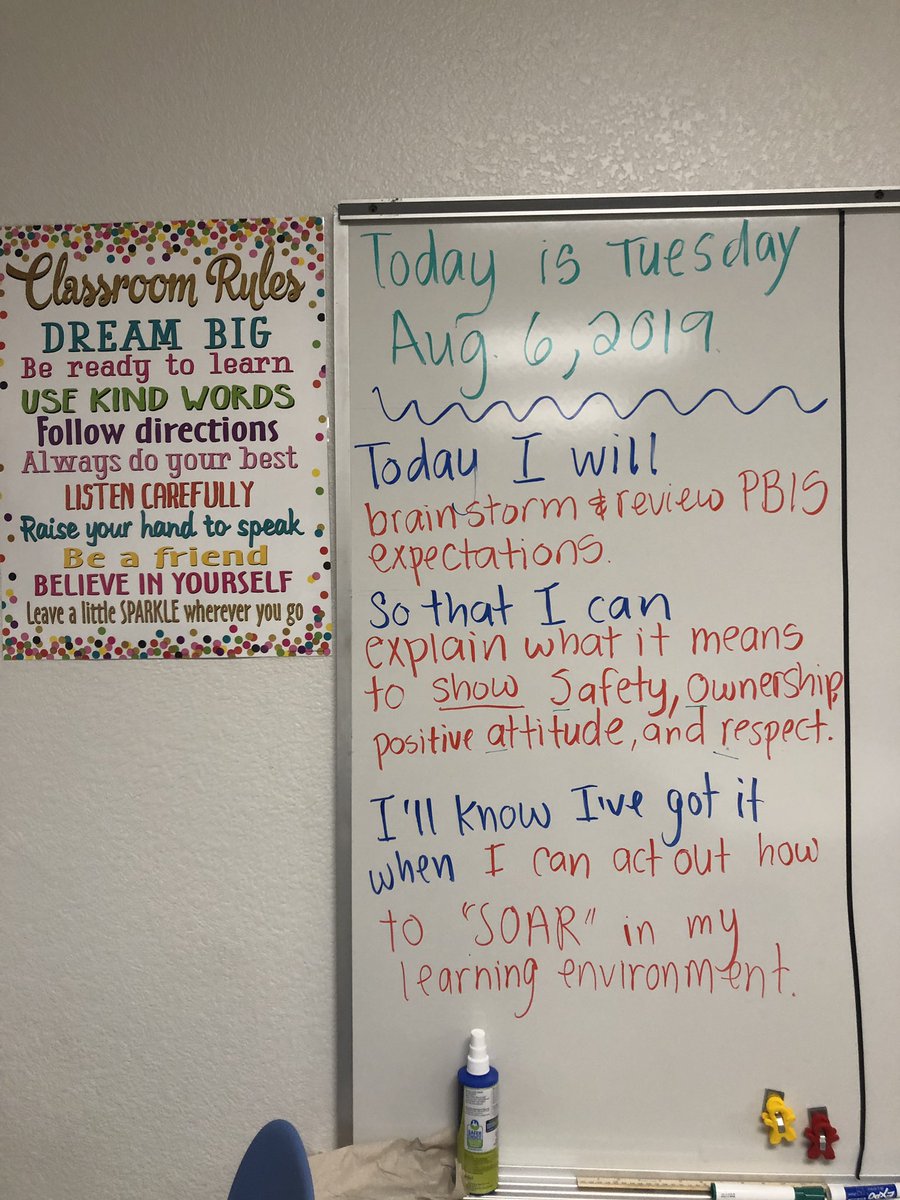 Classroom Rules
DREAM BIG
Be ready to learn
USE KIND WORDS
Follow directions
Always do your best
LISTEN CAREFULLY
Raise your hand to speak
Be a friend
BELIEVE IN YOURSELF
Leave a little SPARKLE wherever you go
Today is Tuesday
Aug. 6, 2019.
Today I will
brainstorm & review PBIS
expectations.
So that I can
explain what it means
to show Safety, Ownership,
positive attitude, and respect.
I'll know I've got it
when I can act out how
to "SOAR" in my
learning environment.
EXPO